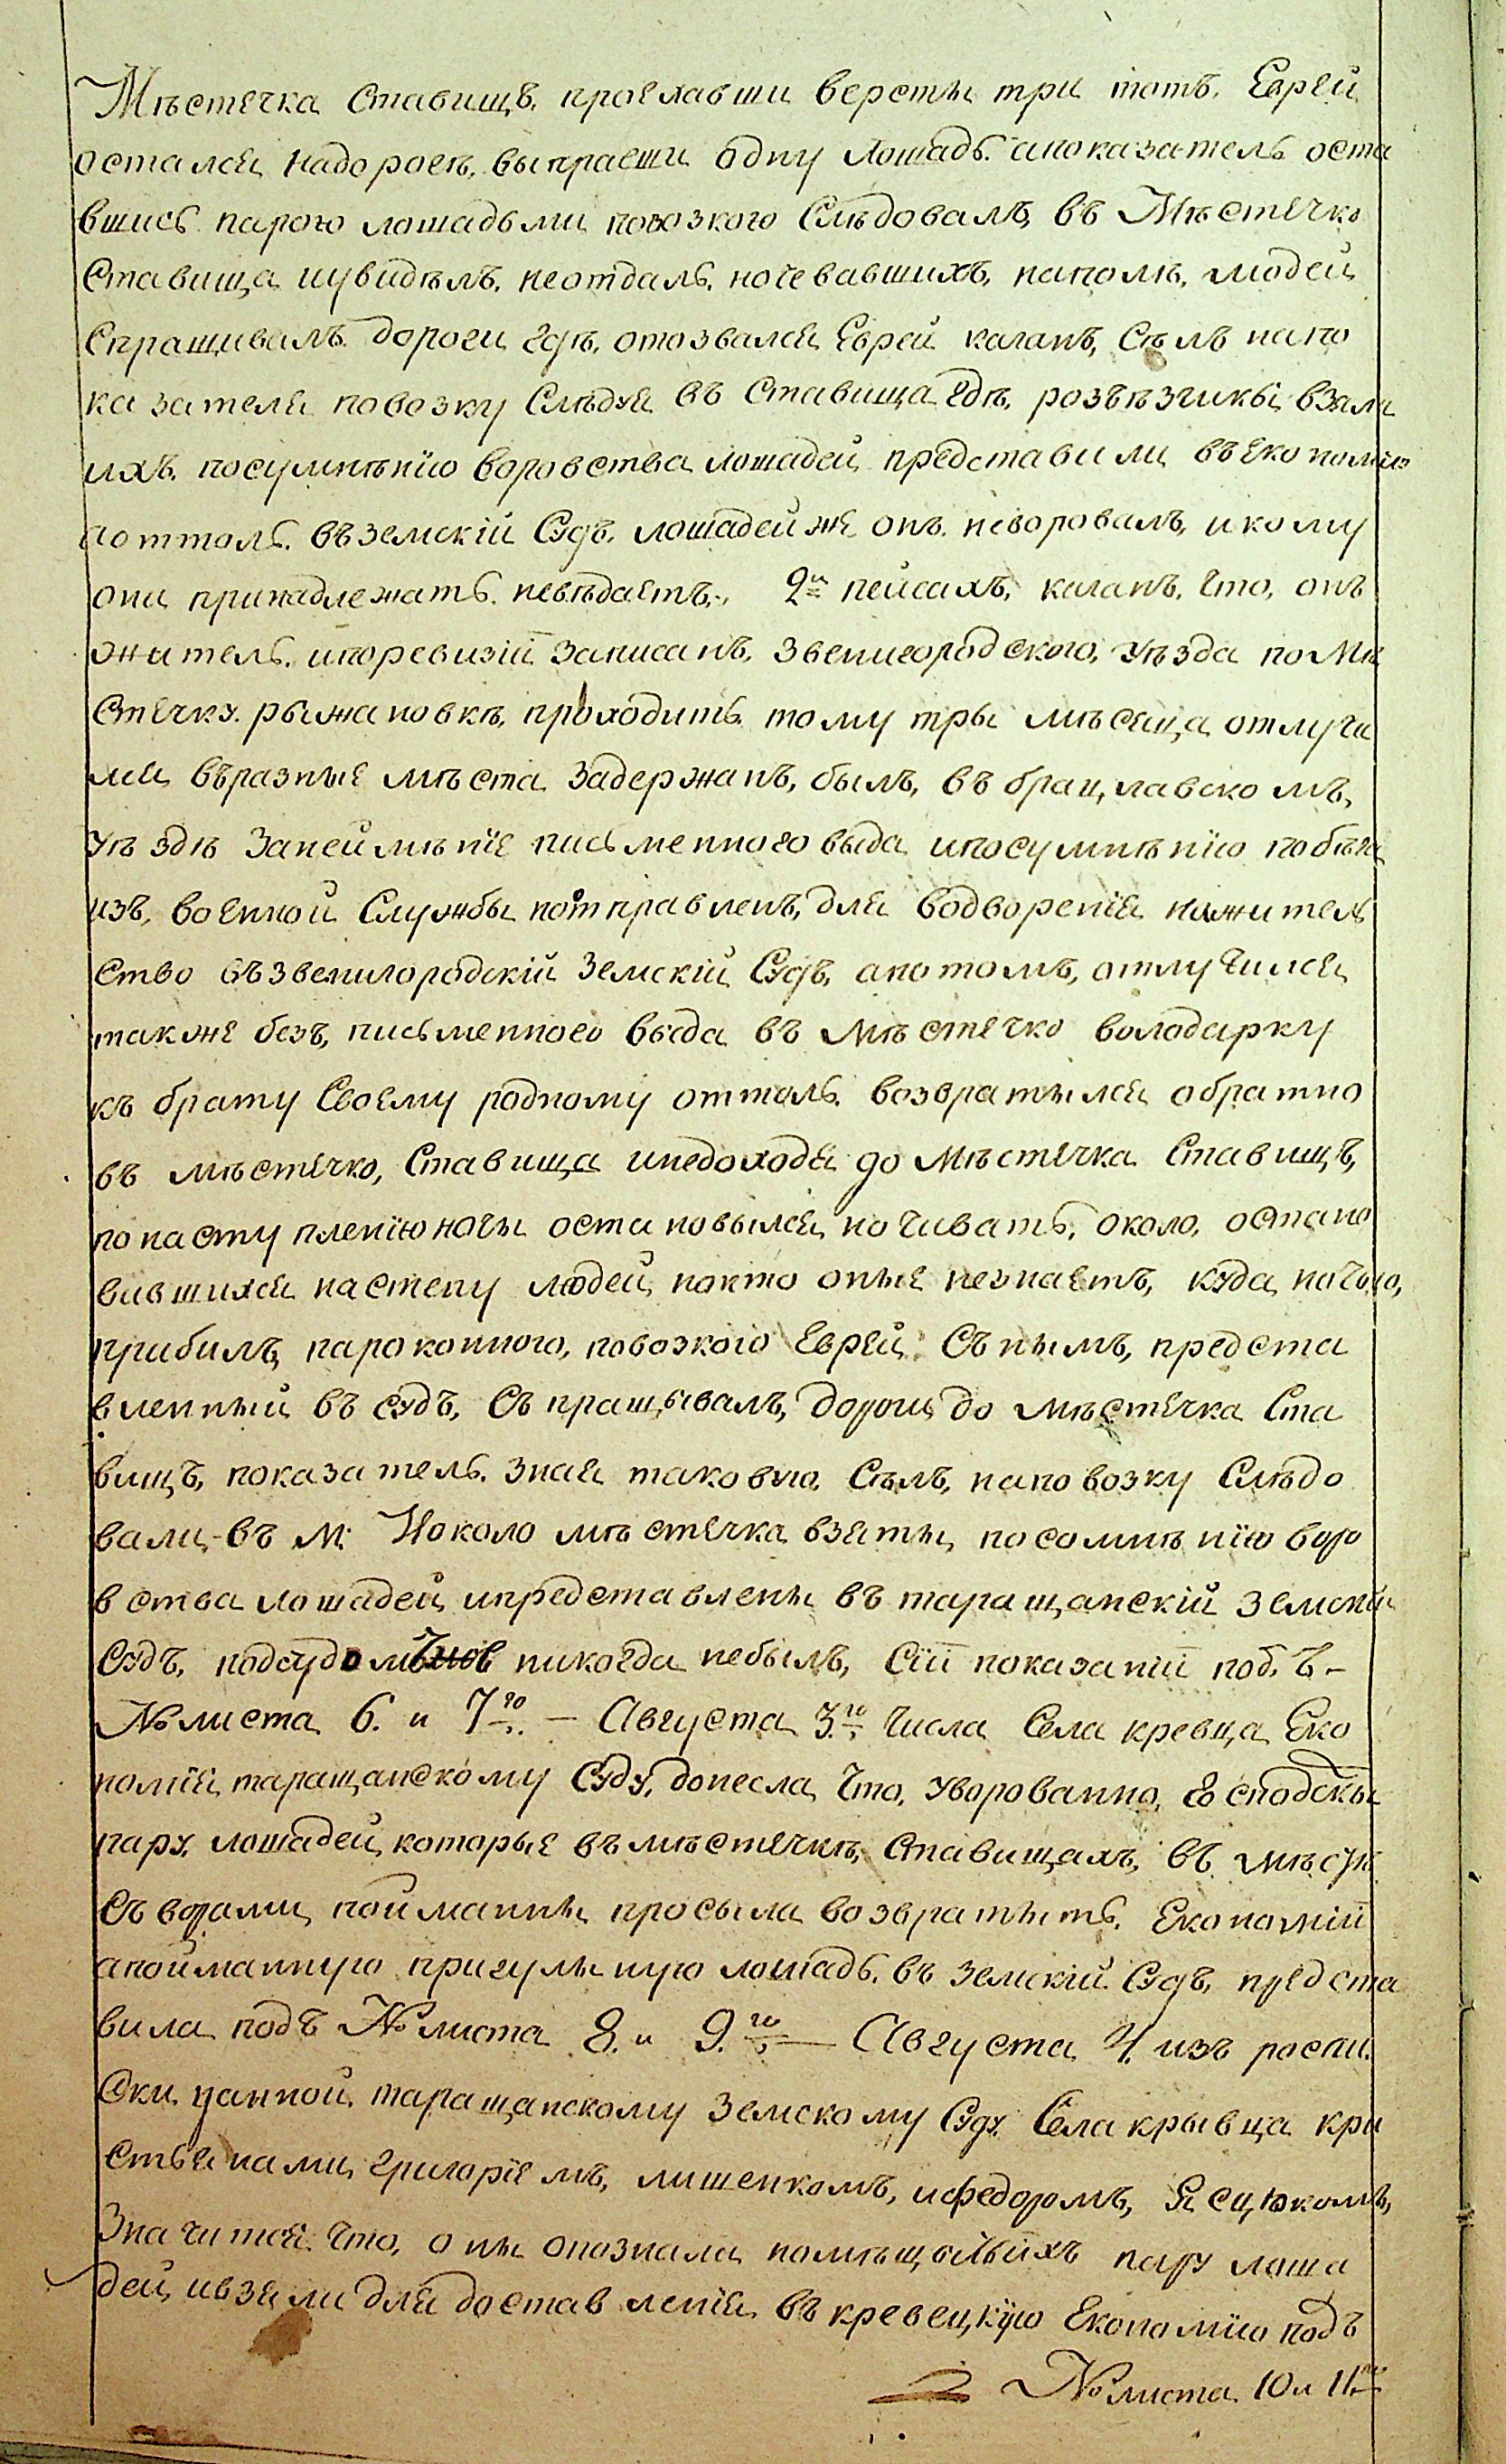 Мѣстечка Ставищъ, проехавши версты три тотъ, Еврей
остался надорогѣ, выпрягши одну лошадь. апоказатель оста
вшись парою лошадьми повозкою Слѣдовалъ, въ Мѣстечко
Ставища иувидѣлъ, неотдаль, ночевавшихъ, наполѣ, людей
Спрашивалъ дороги гдѣ, отозвался Еврей каганъ, Сѣлъ напо
казателя повозку Слѣдуя въ Ставища гдѣ, розъѣзчикы взяли
ихъ, посумнѣнію воровства лошадей представили въ Економію
аоттоль, въземскій Судъ, лошадей же онъ, неворовалъ, икому
они принадлежатъ, невѣдаетъ., 2й пейсахъ, каганъ, что, онъ
житель,ипоревизіи записанъ, Звенигородского, уѣзда поМѣ
стечку рыжановкѣ, проходитъ тому тры мѣсяца отлучи
лся въразные мѣста задержанъ, былъ, въ брацлавскомъ,
уѣздѣ занеимѣніе письменного выда ипосумнѣнію побѣга
изъ, военной Службы поотправленъ, для водворенія нажитель
ство въ звенигородскій Земскій Судъ, апотомъ, отлучился
также безъ, письменного выда въ мѣстечко володарку
къ брату Своему родному оттоль, возвратылся обратно
въ мѣстечко, Ставища инедоходя до Мѣстечка Ставищъ,
понаступленію ночы остановылся, ночивать, около, остано
вившихся настепу людей, нокто оные незнаетъ, куда ночью,
прибилъ, пароконною, повозкою Еврей Съ нымъ, предста
вленный въ судъ, Съпращывалъ, дороги до мѣстечка Ста
вищъ, показатель, зная таковую, Сѣлъ, наповозку Слѣдо
вали въ М: Иоколо мѣстечка взяты, посомнѣнію воро
вства лошадей ипредставлены въ таращанскій земскій
Судъ, подсудомъ никогда небылъ, Сіи показаніи подъ –
№ листа 6. и 7го – Августа 3го числа Села кревца Еко
номія таращанскому Суду, донесла, что, уворованно, господскы
пару, лошадей, которые въ мѣстечкѣ, Ставищахъ, въ мѣстѣ
Съ ворами, пойманны просыла возвратыть, Економіи
апойманную пригульную лошадь, въ земскій Судъ, предста
вила подъ № листа 8. и 9.го – Августа 4. изъ роспи
ски, данной, таращанскому Земскому Суду, Села крывца кри
стьянами, григоріемъ, лишенкомъ, ифедоромъ, Ясцюкомъ,
Значится что, оны опознали помѣщичьихъ пару лоша
дей, ивзяли для доставленія въ кревецкую Економію подъ
№ листа 10 и 11го